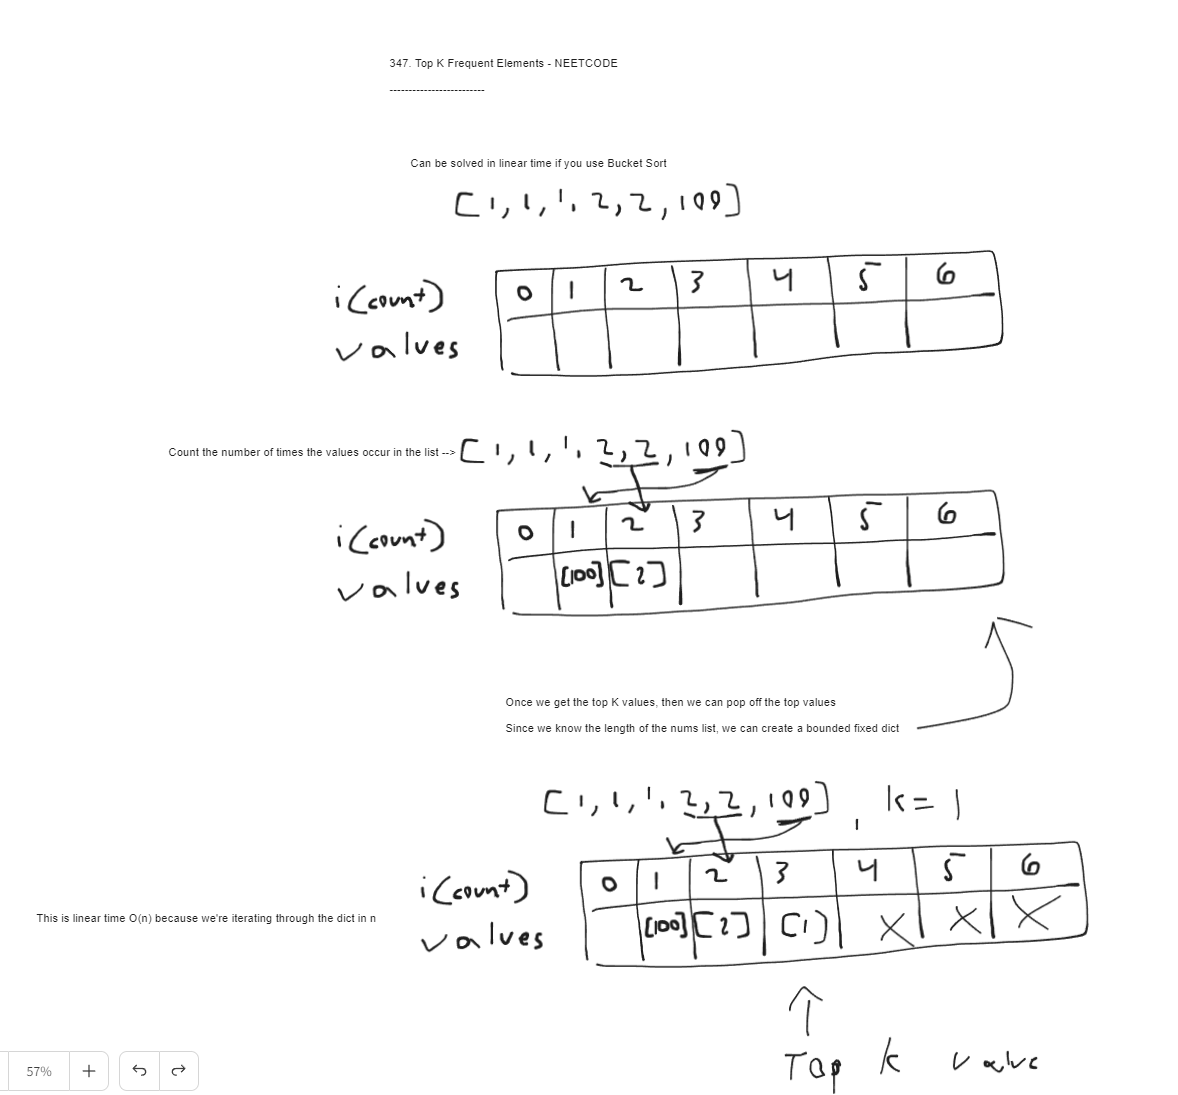 347. Top K Frequent Elements - NEETCODE
-------------------------
Can be solved in linear time if you use Bucket Sort
[1, 1, 1, 2, 2, 100]
i(count) 0 1 2 3 4 5 6
values
Count the number of times the values occur in the list --> [1, 1, 1, 2, 2, 100]
i(count) 0 1 2 3 4 5 6
values [100] [2]
Once we get the top K values, then we can pop off the top values
Since we know the length of the nums list, we can create a bounded fixed dict
[1, 1, 1, 2, 2, 100] , k = 1
i(count) 0 1 2 3 4 5 6
This is linear time O(n) because we're iterating through the dict in n
values [100] [2] [1] X X X
Top k value
57%